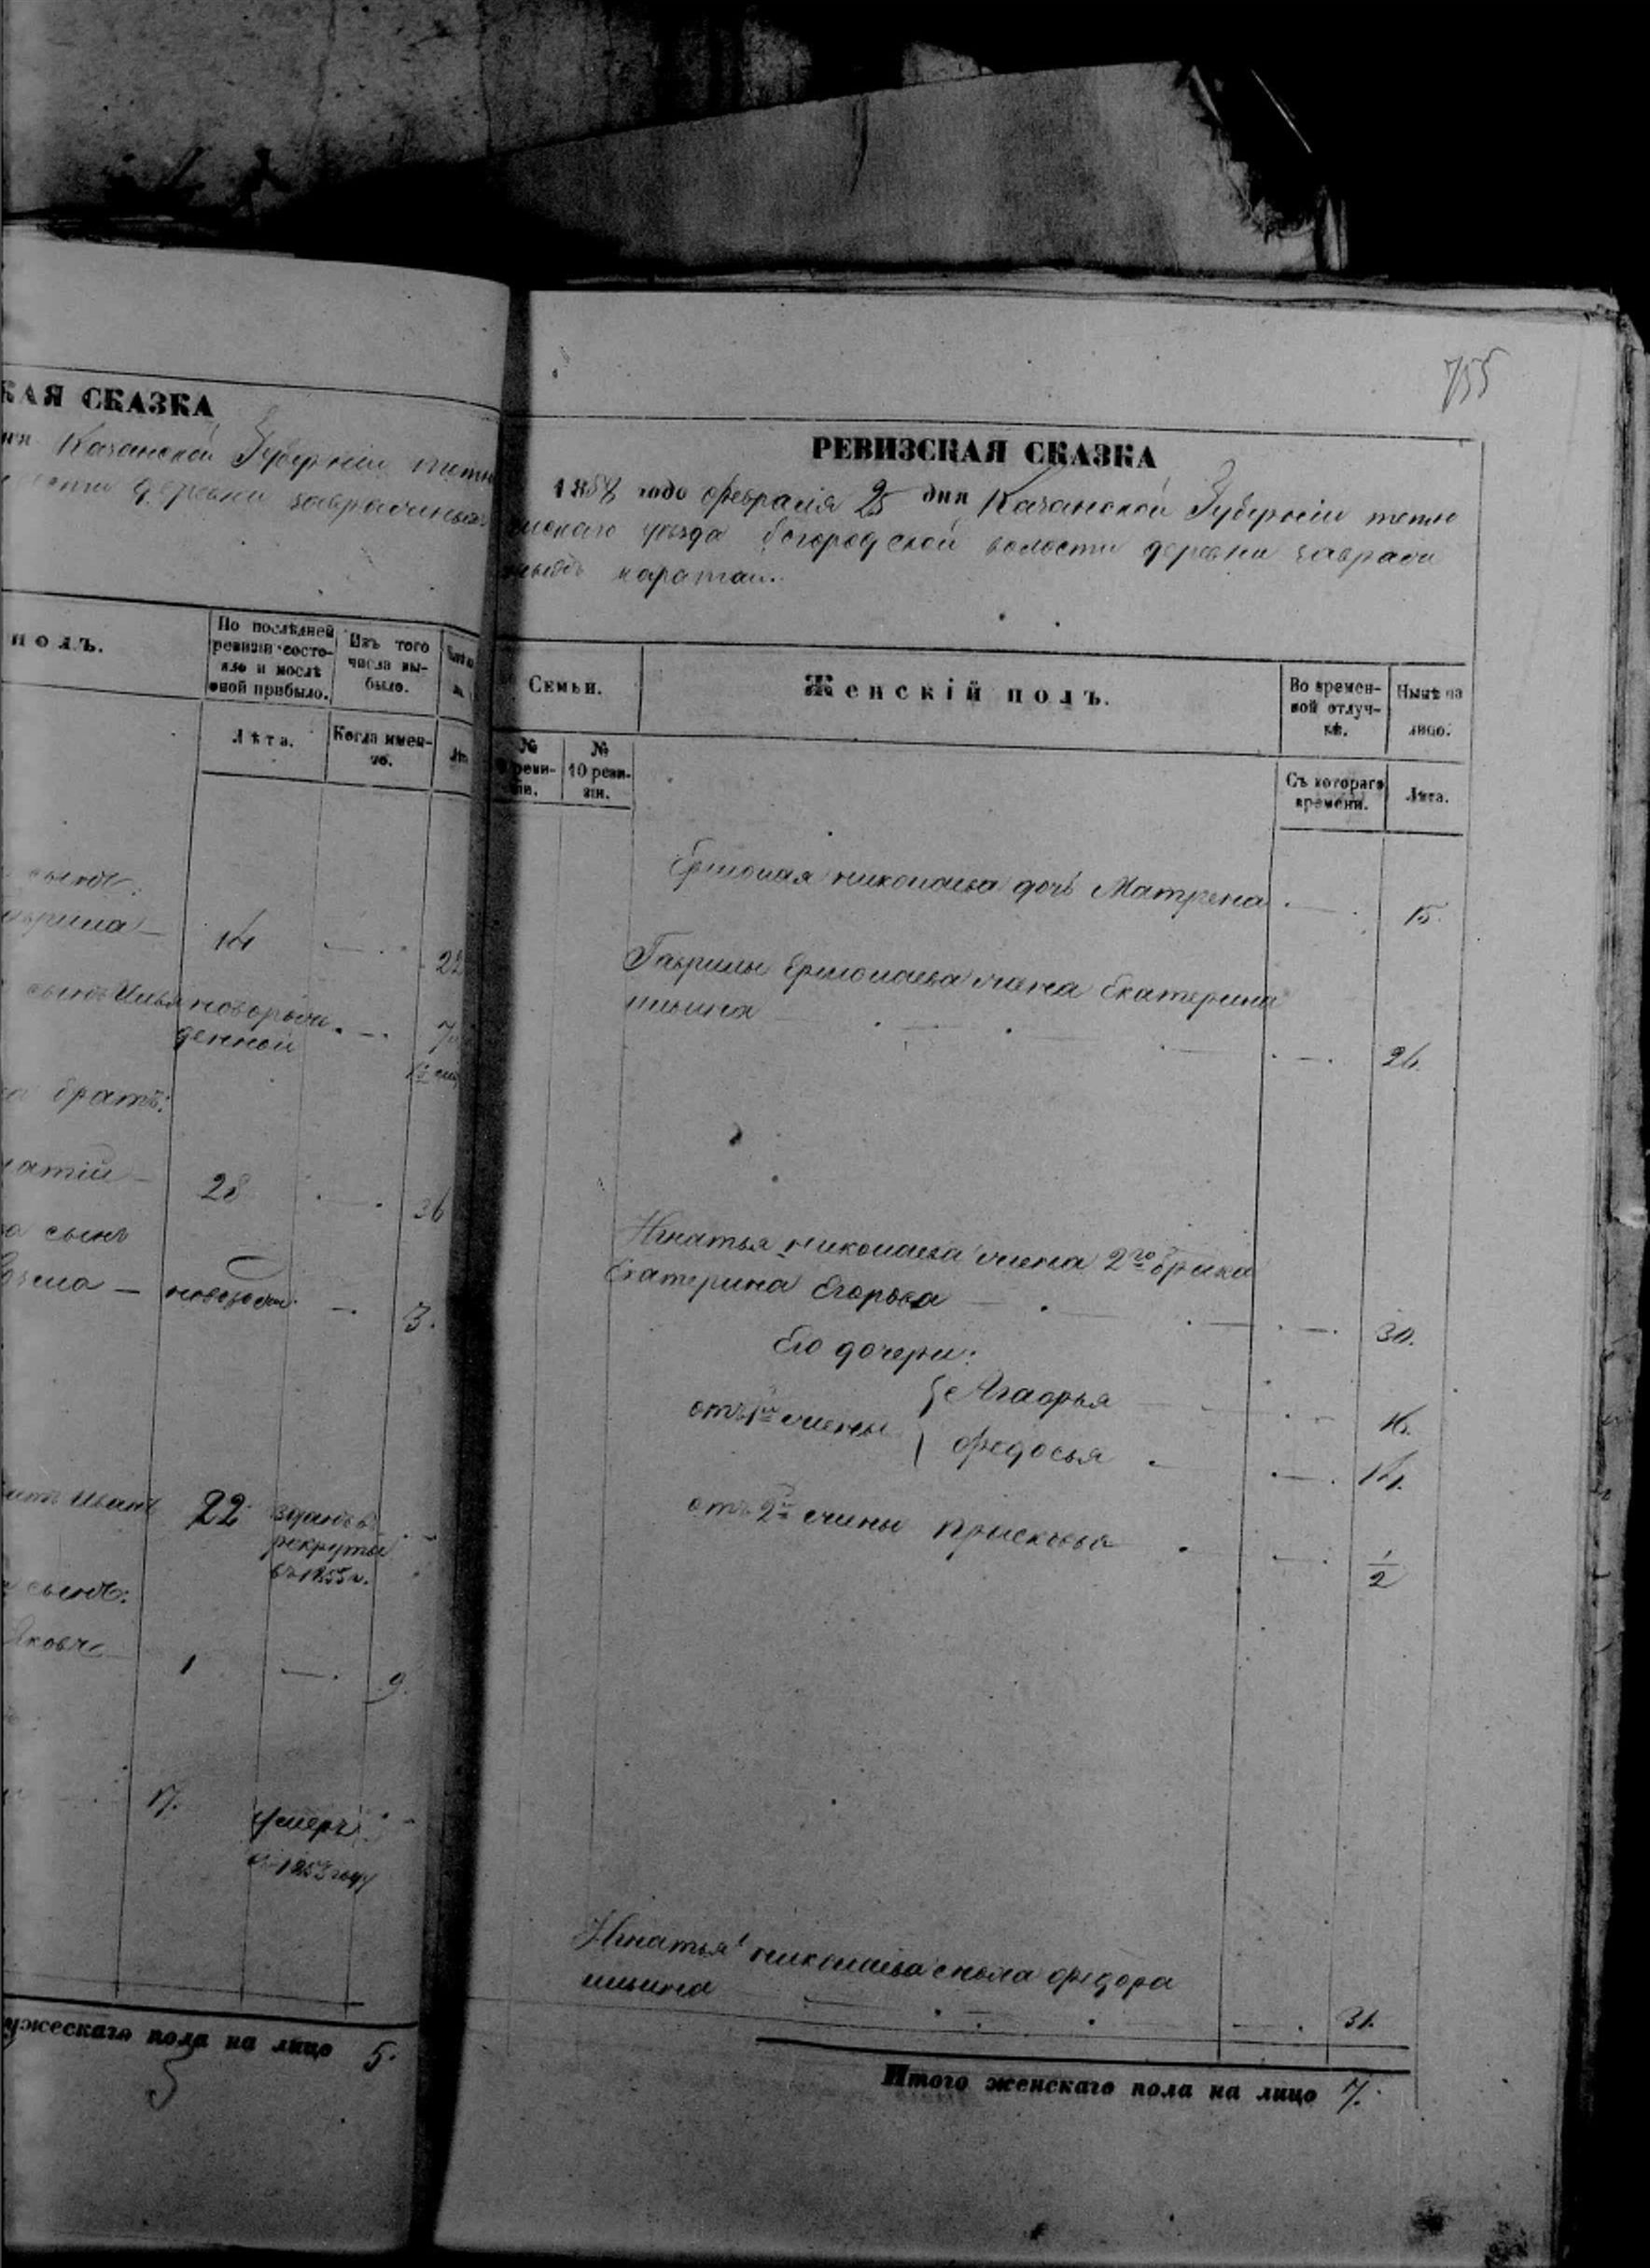 КАЯ СКАЗКА
Казанской Губернии тетю
деревни заврашныхъ
полъ.
По послѣдней
ревизіи состо-
яло и послѣ
оной прибыло.
Изъ того
числа вы-
было.
Лѣта.
Когда имен-
но.
сынъ:
14
22
сынъ Илья новорож
денной
7
братъ:
28
36
сынъ
3.
Иванъ 22 зданъ въ
рекруты
въ 1855 г.
сынъ:
1
9.
17.
умеръ
1853 году
ужескаго пола на лицо 5.
5
755
РЕВИЗСКАЯ СКАЗКА
1858 года февраля 25 дня Казанской Губерніи тетю
шскаго уѣзда богородской волости деревни заврашн
каратаи.
Семьи.
Женскій полъ.
Во времен-
ной отлуч-
кѣ.
Нынѣ на
лицо.
№
реви-
зіи.
№
10 реви-
зіи.
Съ котораго
времени.
Лѣта.
Ермолая николаева дочь Матрена 15.
Гаврилы Ермолаева жена Екатерина
ильина 26.
Игнатья николаева жена 2го брака
Екатерина Егорова 30.
Его дочери:
отъ 1й жены { Агафья 16.
федосья 14.
отъ 2й жены прасковья 1/2
Игнатья николаева сноха федора
ильина 31.
Итого женскаго пола на лицо 7.